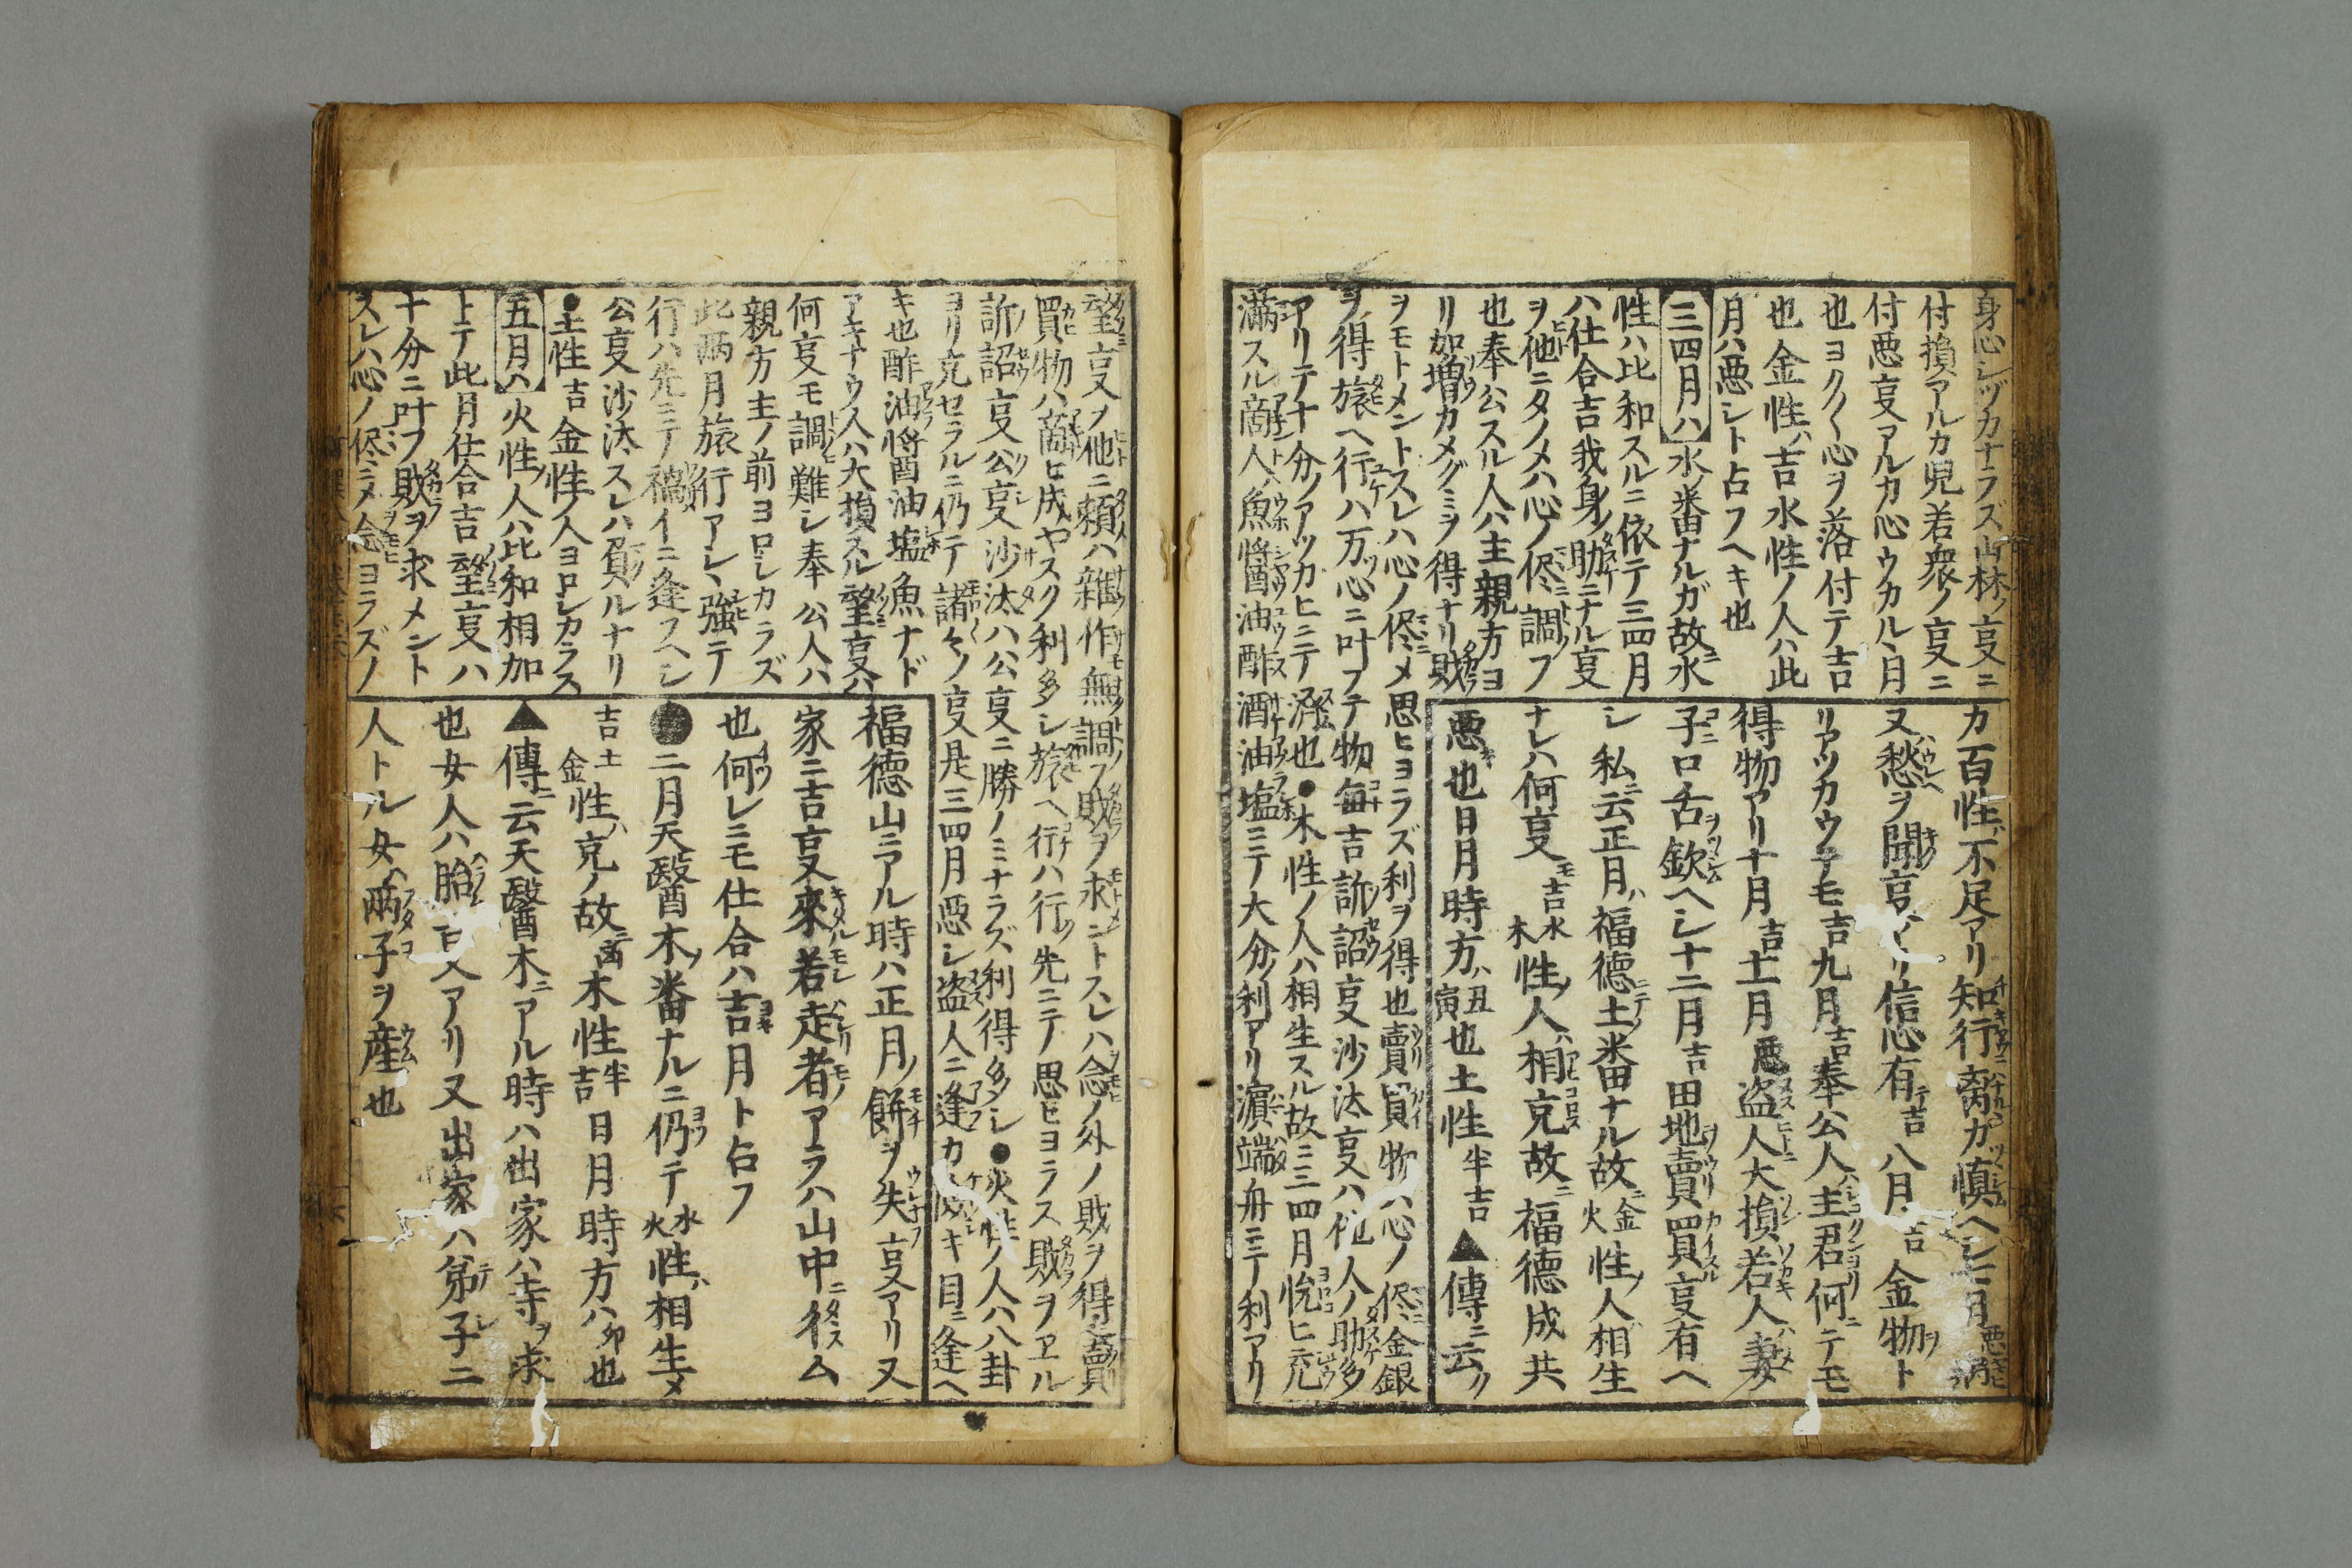 身心シヅカナラズ山林ノ亨ニ
付損アルカ児若衆ノ亨ニ
付悪亨アルカ心ウカルヽ月
也ヨク〱心ヲ落付テ吉
也金性ハ吉水性ノ人ハ此
月ハ悪シト占フヘキ也
三四月ハ水ノ番ナルガ故ニ水
性ハ比和スルニ依テ三四月
ハ仕合吉我身ノ助ニナル亨
ヲ他ニタノメハ心ノ侭ニ調フ
也奉公スル人ハ主親方ヨ
リ加増カメグミヲ得ナリ賤
ヲモトメントスレハ心ノ侭ニメ思ヒヨラズ利ヲ得也賣買物ハ心ノ侭ニ金銀
ヲ得旅ヘ行ハ万心ニ叶フテ物毎吉訴詔亨沙汰亨ハ他人ノ助多
アリテ十分ノアツカヒニテ済也●木性ノ人ハ相生スル故ニ三四月悦ヒ充
満スル商人魚醤油酢酒油塩ニテ大分ノ利アリ濵端舟ニテ利アリ
カ百性ハ不足アリ知行离カ慎ヘシ七月悪
又愁ヲ聞亨アリ信心有テ吉八月吉金物ト
リアツカウテモ吉九月吉奉公人ハ主君何ニテモ
得物アリ十月吉十一月悪盗人大損若人妻
子ニ口舌欽ヘシ十二月吉田地賣買亨有ヘ
シ私ニ云正月ハ福徳土ノ番ナル故ニ金火性ノ人相生
ナレハ何亨モ吉水木性ノ人ハ相克故ニ福徳成共
悪也日月時方ハ丑寅也土性半吉▲傳ニ云ク
望亨ヲ他ニ頼ハ雑作無調フ賤ヲ求メントスレハ念ノ外ノ賤ヲ得賣
買物ハ商ヒ成ヤスク利多シ旅ヘ行ハ行先ニテ思ヒヨラス賤ヲヱル
訴詔亨公亨沙汰ハ公亨ニ勝ノミナラズ利得多シ●火性ノ人ハ八卦
ヨリ克セラルニ仍テ諸々ノ亨是三四月悪シ盗人ニ逢カ キ目ニ逢ヘ
キ也酢油醤油塩魚ナド
アキナウ人ハ大損スル望亨ハ
何亨モ調難シ奉公人ハ
親方主ノ前ヨロシカラズ
此兩月旅行アレヽ強テ
行ハ先ニテ禍イニ逢フヘシ
公亨沙汰スレハ負ルナリ
●土性吉金性ノ人ヨロシカラス
五月ハ火性ノ人ハ比和相加
トテ此月仕合吉望亨ハ
十分ニ叶フ賤ヲ求メント
スレハ心ノ侭ニメ念ヨラズノ
福徳山ニアル時ハ正月ノ餅ヲ失亨アリ又
家ニ吉亨來若走者アラハ山中ニ行ム
也何レニモ仕合ハ吉月ト占フ
●二月天醫木ノ番ナルニ仍テ水火性ハ相生メ
吉土金性ハ克ノ故ニ凶木性半吉日月時方ハ卯也
▲傳ニ云天醫木ニアル時ハ出家ハ寺ヲ求
也女人ハ胎 アリ又出家ハ弟子ニ
人トル女ハ兩子ヲ産也